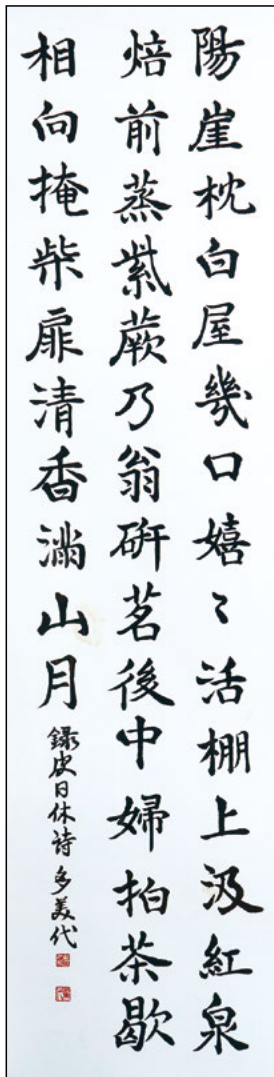 陽崖枕白屋幾口嬉〻活棚上汲紅泉
焙前蒸紫蕨乃翁研茗後中婦拍茶歇
相向掩柴扉清香滿山月
錄皮日休诗 多美代